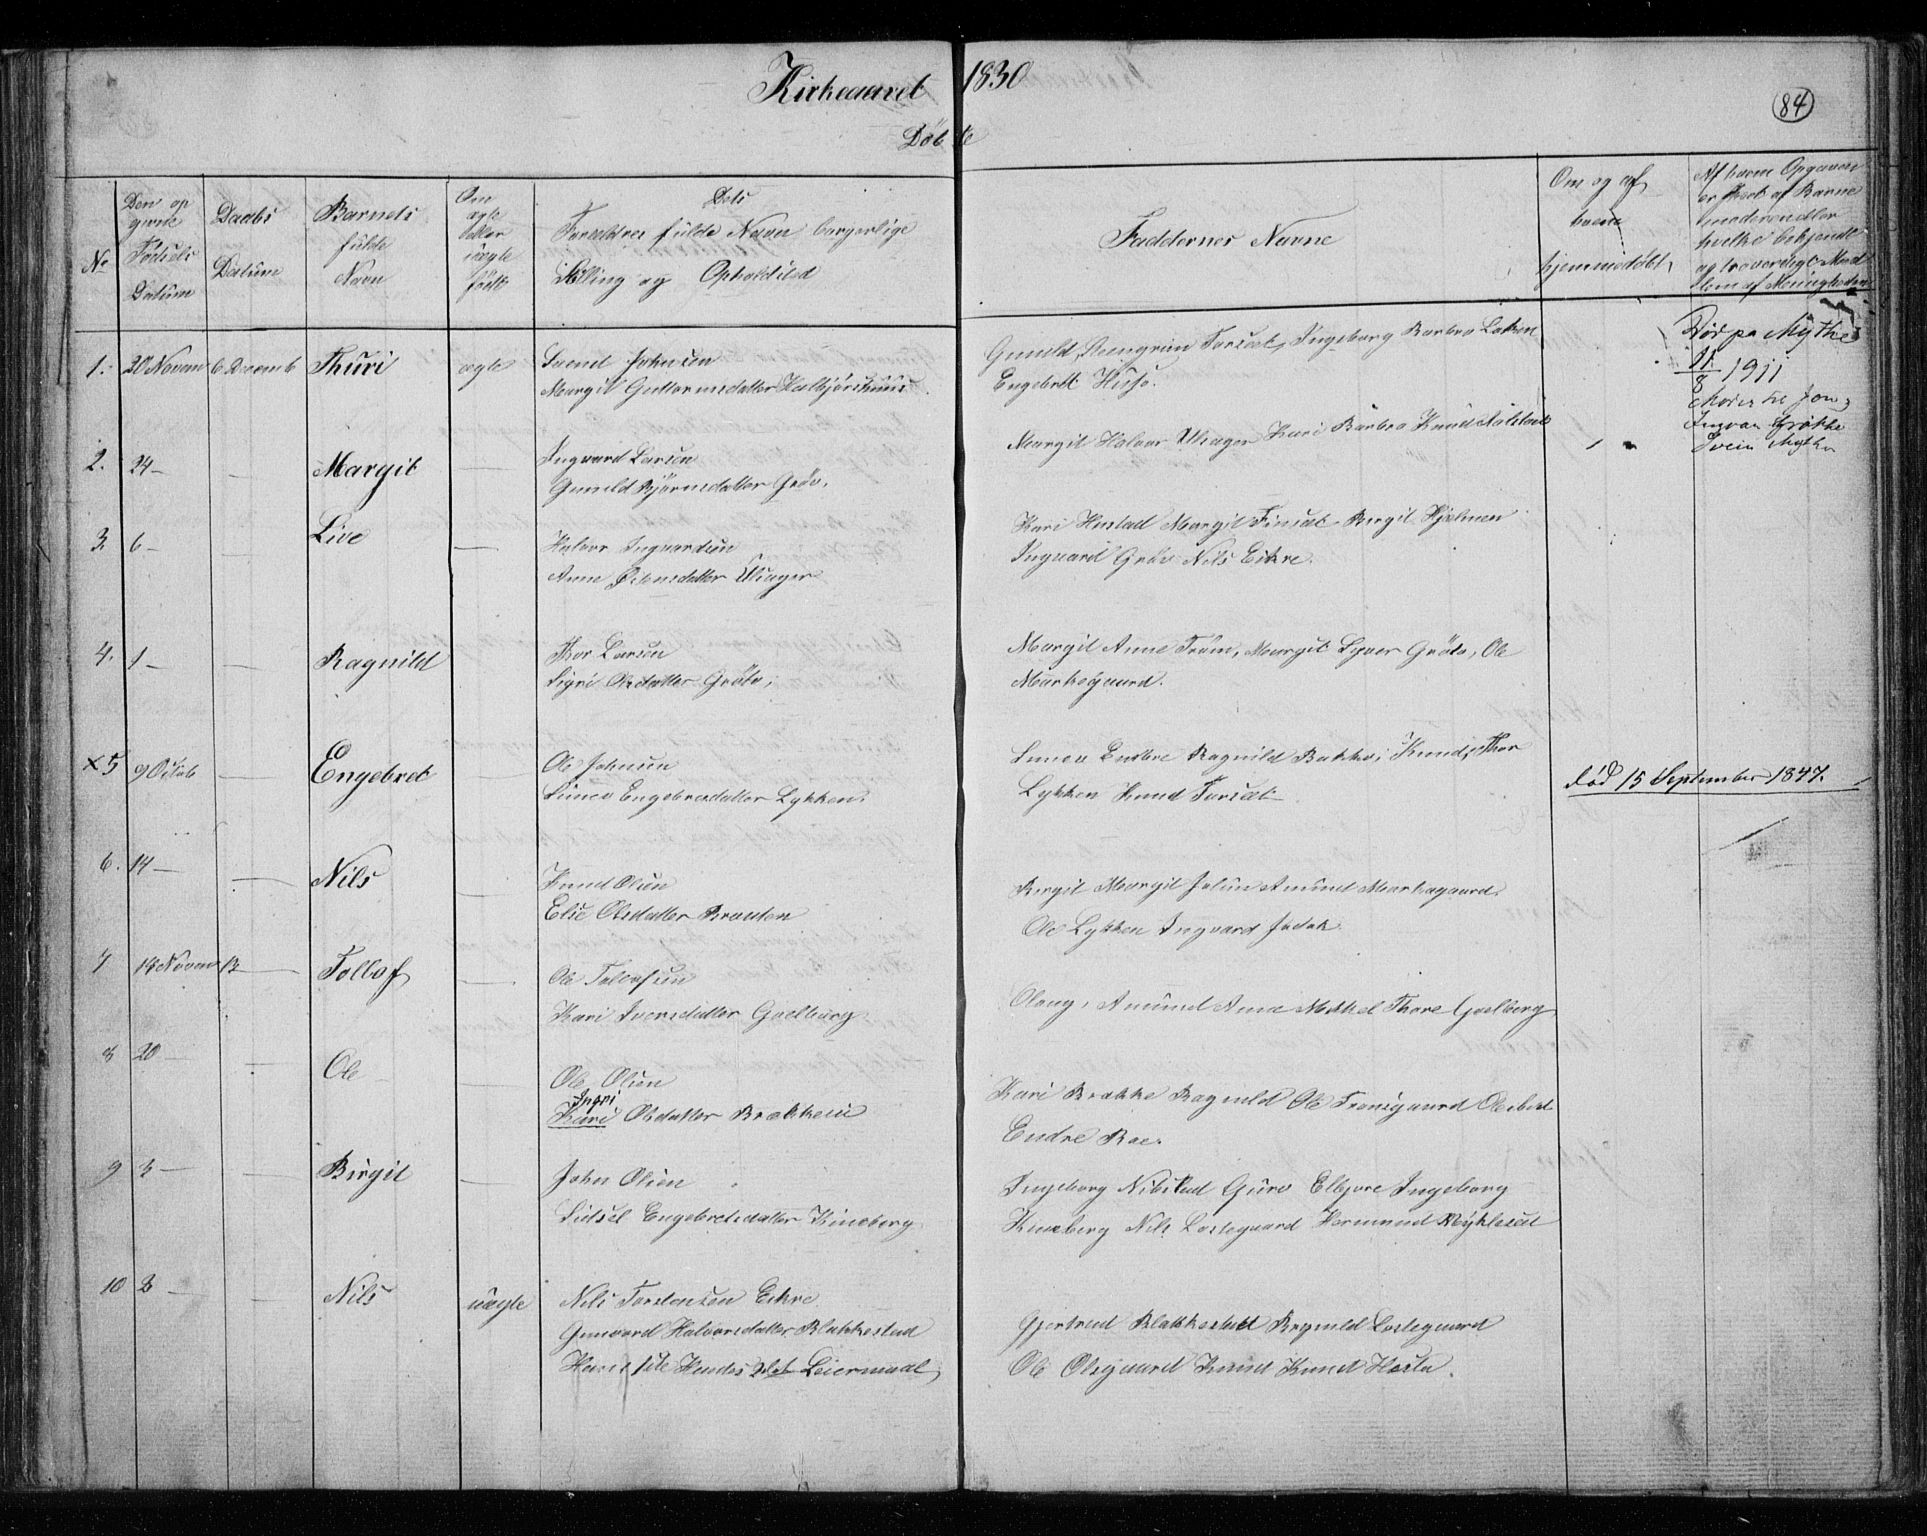 Kirkeaaret 1830
84
Døbte
No
Den op
givne
Fødsels
Datum
Daabs
Datum
Barnets
fulde
Navn
Om
ægte
eller
uægte
født
Dets
Forældres fulde Navn borgerlige
Stilling og Opholdsted
Faddernes Navne
Om og af
hvem
hjemmedøbt
Af hvem Opgaven
er skeet af Barne
moderen eller
hvilke bekjendt
og troværdigt Med
lem af Menigheden
1. 20 Novem 6 Decemb Thuri ægte Svend Johnsen
Margit Guttormsdatter
Gunild Steengrim Torset, Ingeborg Barbro Løkken
Engebrett Huso.
Død på Mythe
11/8 1911
Moder til Jon,
Ingvar Grøthe
Svein Mythe
2. 24 — — Margit — Ingvard Larsen
Gunild Bjørnsdatter Grøv.
Margit Halvor Ulsager Kari Barbro Knud
3. 6 — — Live — Halvor Ingvardsen
Anne Østensdatter Ulsager
Kari Hustad Margit Finset Birgit Hjelmen
Ingvard Grøv Nils Eikre.
4. 1 — — Ragnild Thor Larsen
Sigri Olsdatter Grøte,
Margit Anne Trøim, Margit Syver Grøte, Ole
Markegaard.
x5 9 Octob — Engebret — Ole Johnsen
Engebretsdatter Lykken.
Endre Ragnild Bakke, Knud, Thor
Lykken Knud Torset
død 15 September 1847.
6. 14 — — Nils — Knud Olsen
Elie Olsdatter Brauten
Birgit Margit Johun Amund Markegaard.
Ole Lykken Ingvard
7 18 Novem 12 — Tollof — Ole Tollofsen
Kari Iversdatter Goelberg
Olaug, Amund Anne Mikkel Thore Goelberg
8 20 — — Ole — Ole Olsen
Ingri
Kari Olsdatter Brekken
Kari Brække Ragnild Ole
Endre Roe.
9 3 — — Birgit — John Olsen
Sidsel Engebretsdatter Kineberg
Ingeborg Guro Elbjøre Ingeborg
Kineberg Nils Lostegaard Hermund
10 8 — — Nils uægte Nils Torstensen Eikre
Gunvord Halvorsdatter Blakkestad
Hans 1ste Hendes 2det Leiermaal
Gjertrud Blakkestad Ragnild Lostegaard
Ole Olsgaard Knud Knud